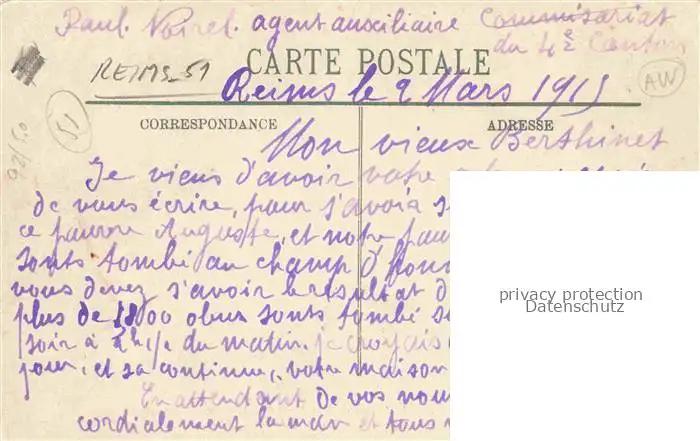 Paul Noirel agent auxiliaire Commissariat
du 4e Canton
REIMS_51
CARTE POSTALE
AW
Reims le 2 Mars 1915
51
CORRESPONDANCE
ADRESSE
Mon vieux Berthinet
Je viens d'avoir votre
de vous écrire, pour s'avoir
ce pauvre Auguste, et notre
sonts tombé au champ d'
vous devez s'avoir le resultat
plus de 1800 obus sonts tombé
soir à 2h 1/2 du matin. je croyais
jour, et sa continue, votre maison
En attendant de vos
cordialement la main et tous
privacy protection
Datenschutz